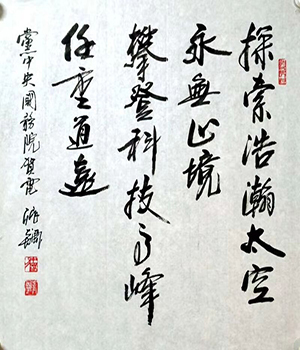 探索浩瀚太空
永無止境
攀登科技高峰
任重道遠
黨中央國務院賀電